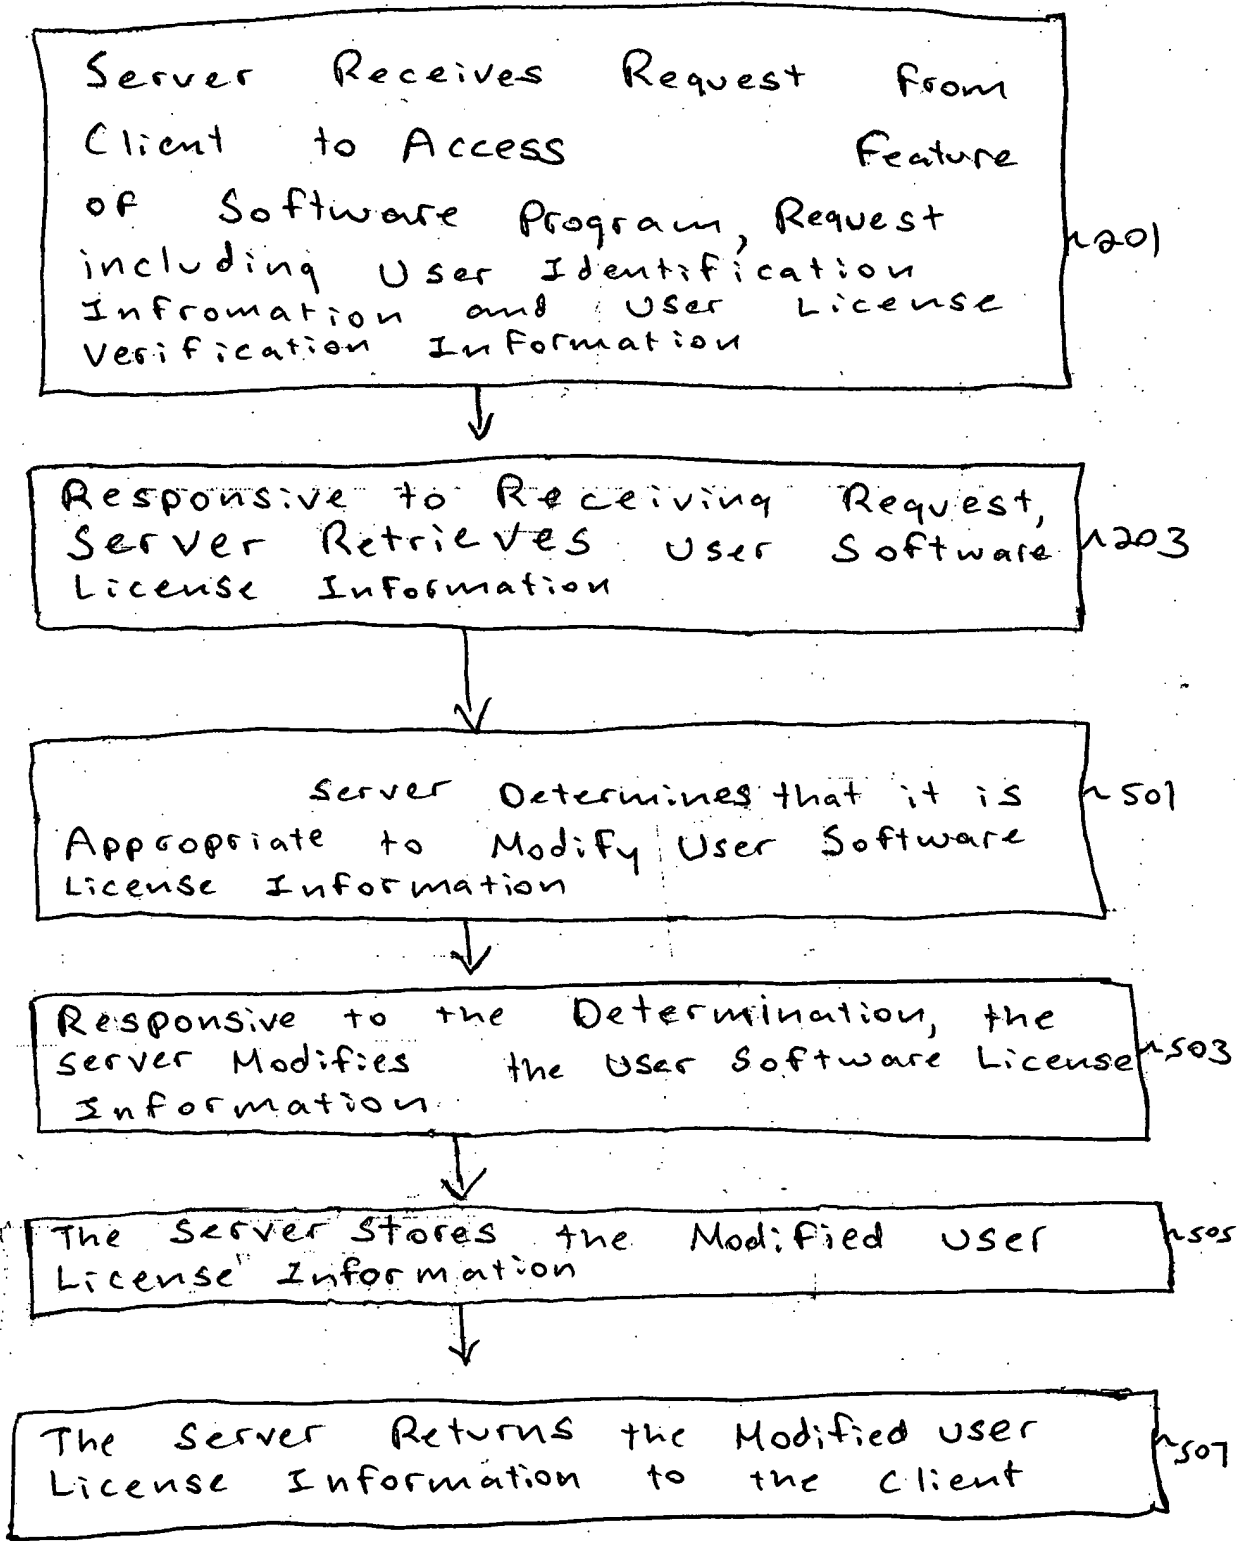 Server Receives Request From
Client to Access Feature
of Software Program, Request
including User Identification
Infromation and User License
Verification Information
~201
Responsive to Receiving Request,
Server Retrieves User Software
License Information
~203
Server Determines that it is
Appropriate to Modify User Software
License Information
~501
Responsive to the Determination, the
server Modifies the User Software License
Information
~503
The Server Stores the Modified User
License Information
~505
The Server Returns the Modified User
License Information to the Client
~507